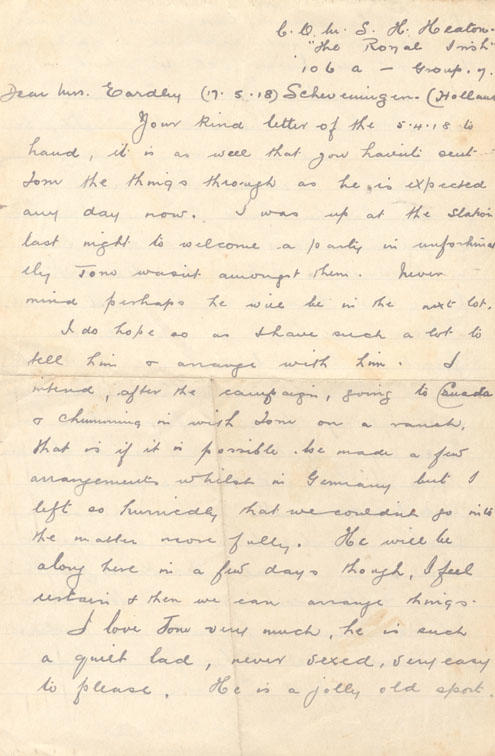 C. Q. M. S. H. Heaton.
"The Royal Irish"
106 a - Group. 7.
Dear Mrs. Eardley (17.5.18) Scheveningen. (Holland
Your kind letter of the 5.4.18 to
hand, it is as well that you havent sent
Tom the things through as he is expected
any day now. I was up at the station
last night to welcome a party in unfortunat
ely Tom wasint amongst them. Never
mind perhaps he will be in the next lot.
I do hope so as I have such a lot to
tell him & arrange with him. I
intend, after the campaign, going to Canada
& chumming in with Tom on a ranch,
that is if it is possible. We made a few
arrangements whilst in Germany but I
left so hurriedly that we couldnt go into
the matter more fully. He will be
along here in a few days though, I feel
certain & then we can arrange things.
I love Tom very much, he is such
a quiet lad, never vexed, very easy
to please. He is a jolly old sport.